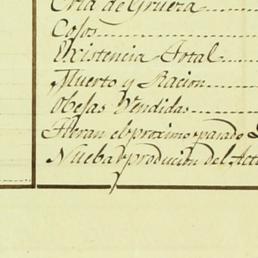 Cria de Gruesa
Cojos
Existencia Total
Muerto y Racion
Obejas Vendidas
Yteran el proximo pasado
Nueba produccion del Act